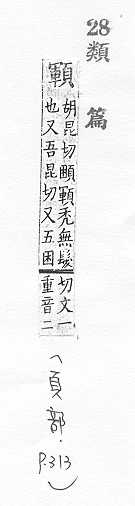 28 類篇
顐
胡昆切顐禿無髮
也又吾昆切又五困
切文一
重音二
(頁部.
P.313)